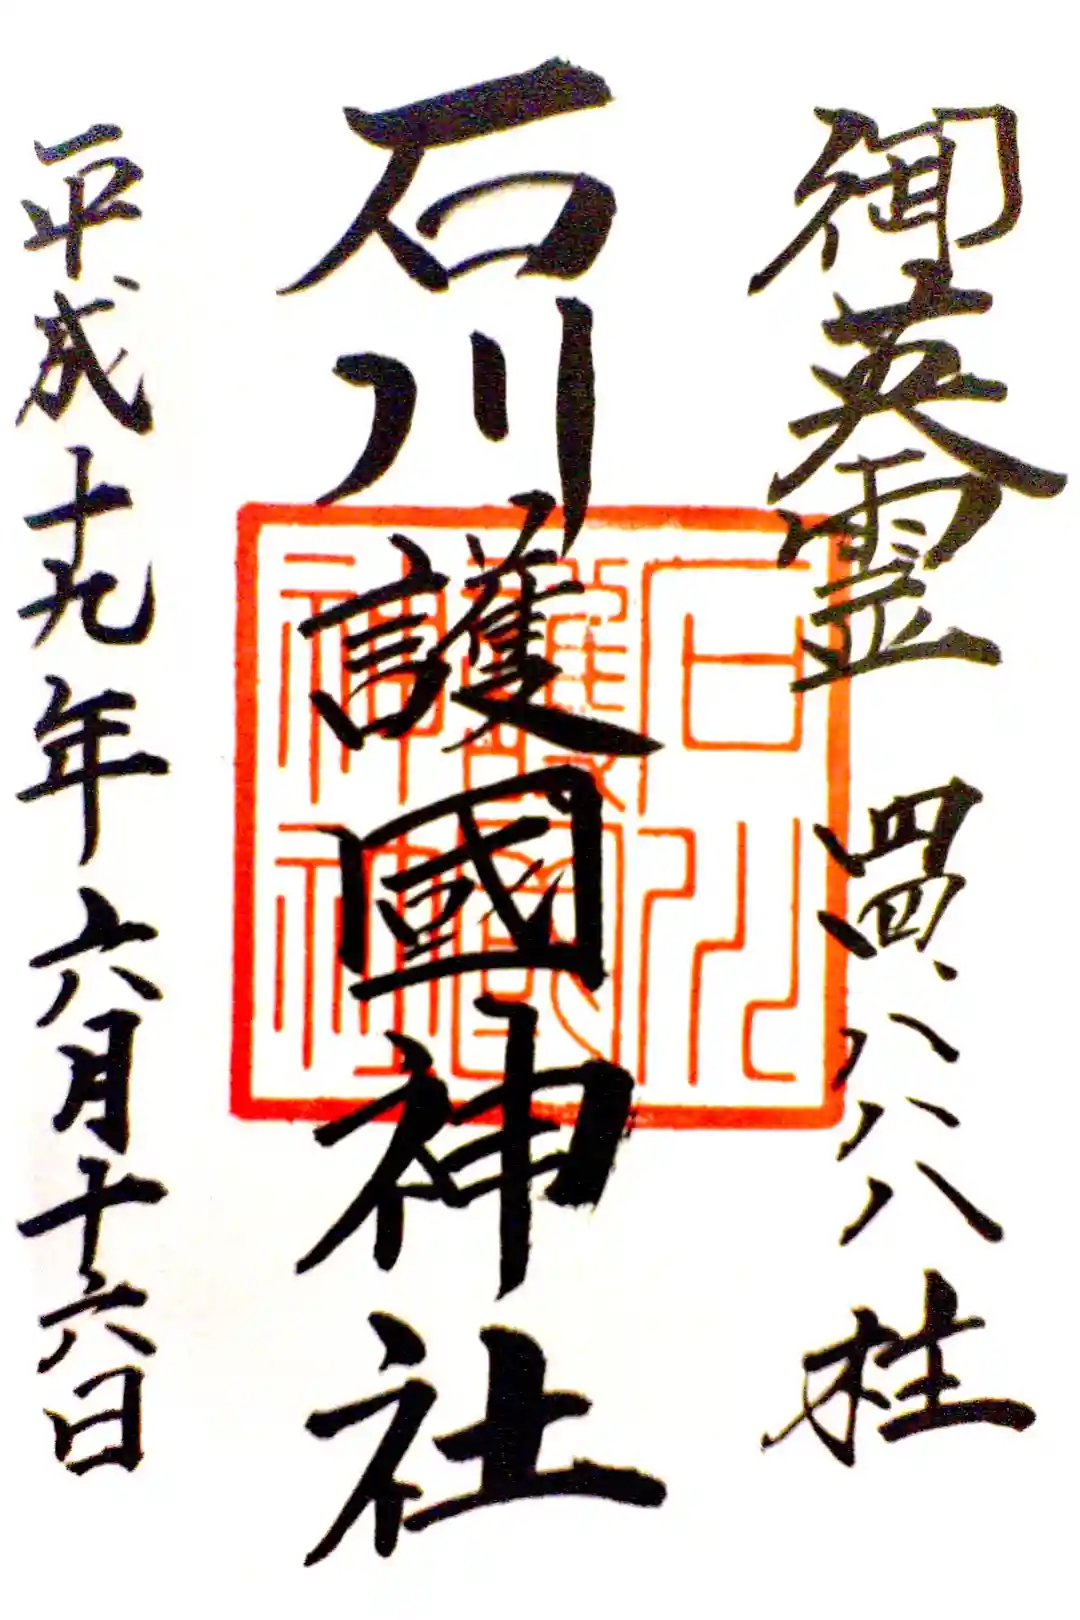 御英霊 四四、八八八柱
石川護國神社
平成十九年六月十六日
石川
護國
神社